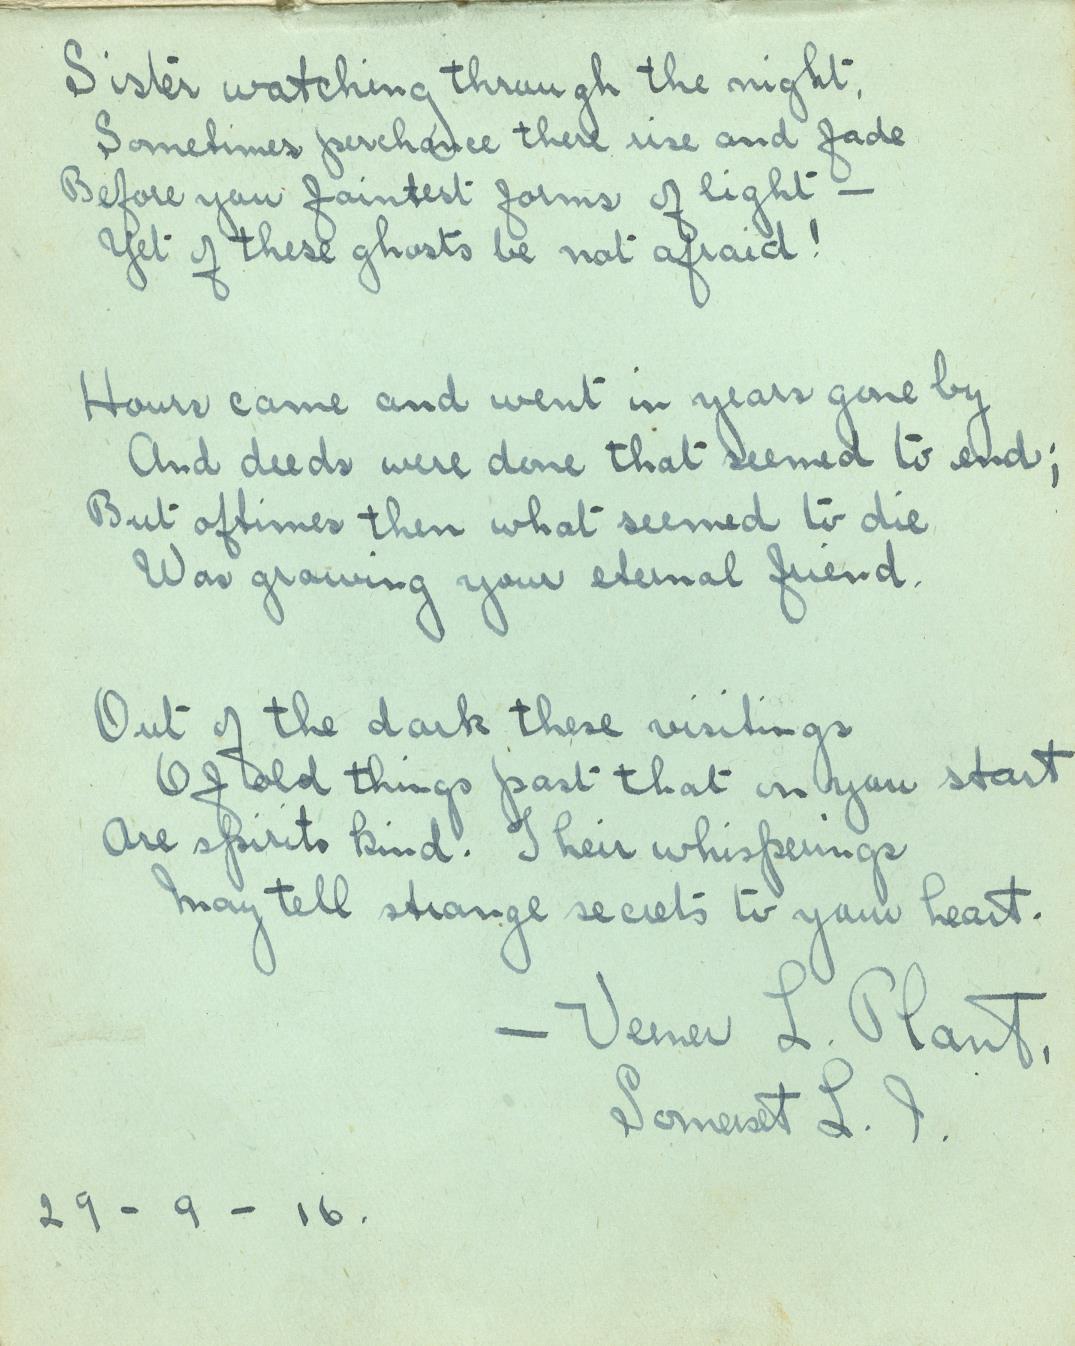 Sister watching through the night,
Sometimes perchance there rise and fade
Before you faintest forms of light —
Yet of these ghosts be not afraid!
Hours came and went in years gone by
And deeds were done that seemed to end;
But oftimes then what seemed to die
Was growing your eternal friend.
Out of the dark these visitings
Of old things past that in you start
Are spirits kind. Their whisperings
May tell strange secrets to your heart.
— Verner L. Plant,
Somerset L. I.
29 - 9 - 16.